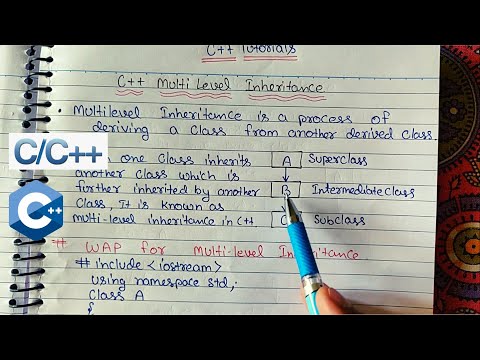 C++ Tutorials
C++ Multi Level Inheritance
• Multilevel Inheritance is a process of
deriving a class from another derived class.
C/C++
one class inherits
A Superclass
another class which is
further inherited by another
B Intermediate Class
Class, It is known as
multi-level inheritance in C++
C Subclass
C++
# WAP for Multi-level Inheritance
# include <iostream>
using namespace std;
Class A
{